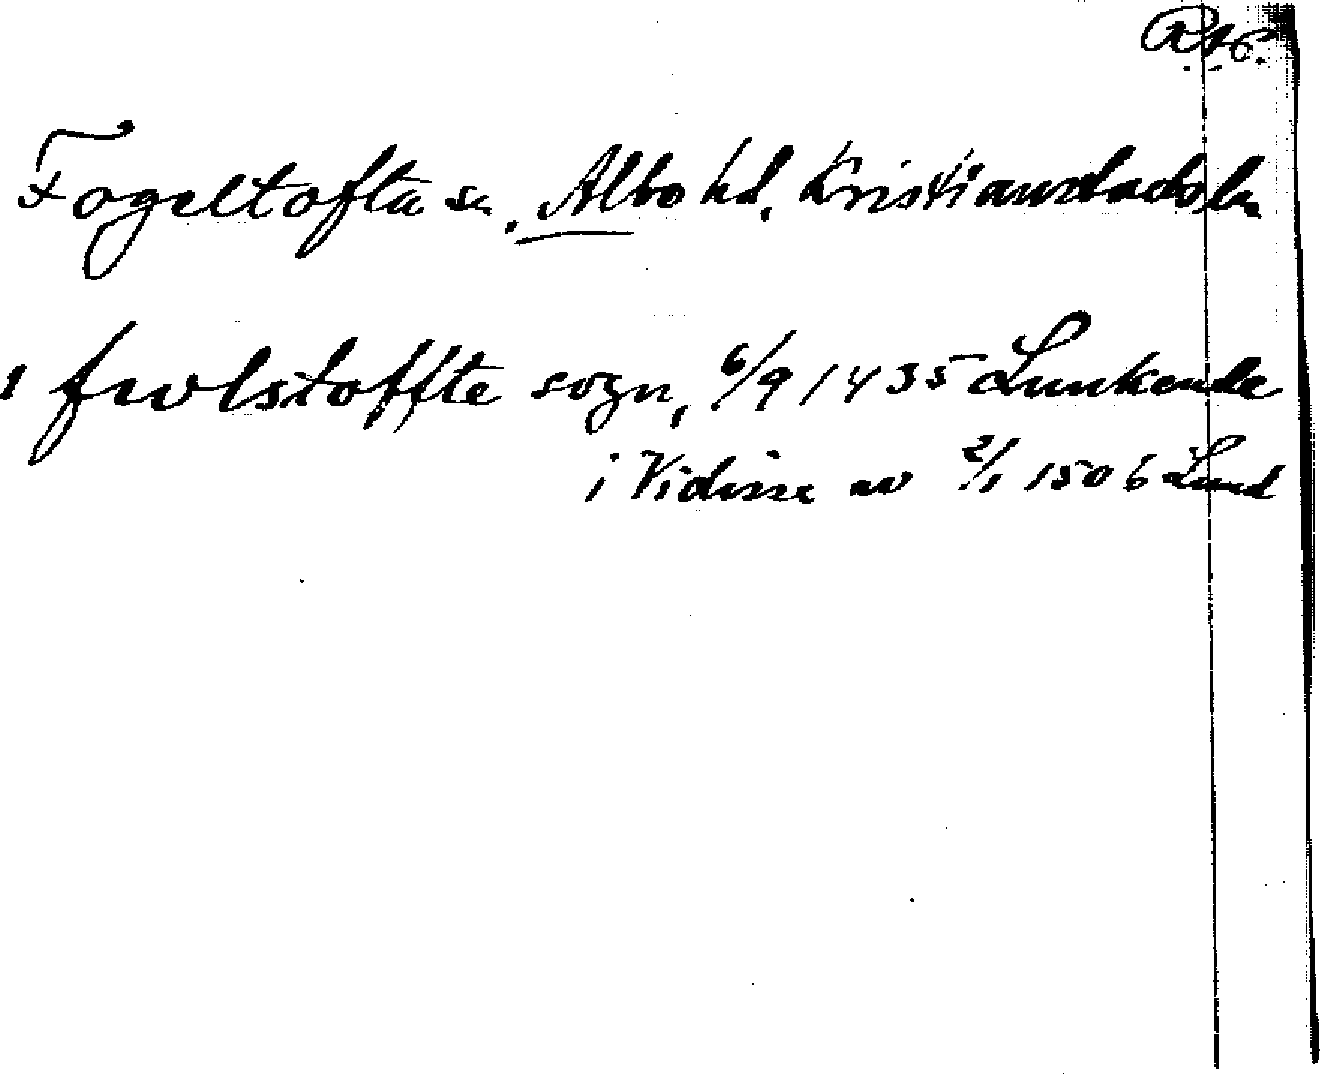 Fogeltofta sn. Albo hd. Kristianstads ln
i frwlstoffte sogn, 6/9 1435 Lunkende
i Vidisse av 2/1 1506 Lund